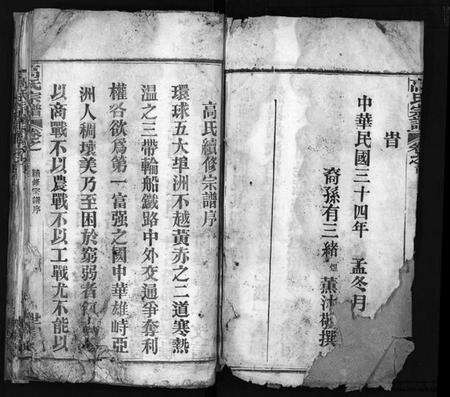 高氏宗譜
貴
中華民國三十四年 孟冬月
裔孫有三緒 薰沐敬撰
高氏續修宗譜序
環球五大埠洲不越黃赤之二道寒熱
溫之三帶輪船鐵路中外交通爭奪利
權各欲爲第一富强之國中華雄峙亞
洲人稠壤美乃至困於窮弱者
以商戰不以農戰不以工戰尤不能以
高氏宗譜 卷之一
續修宗譜序